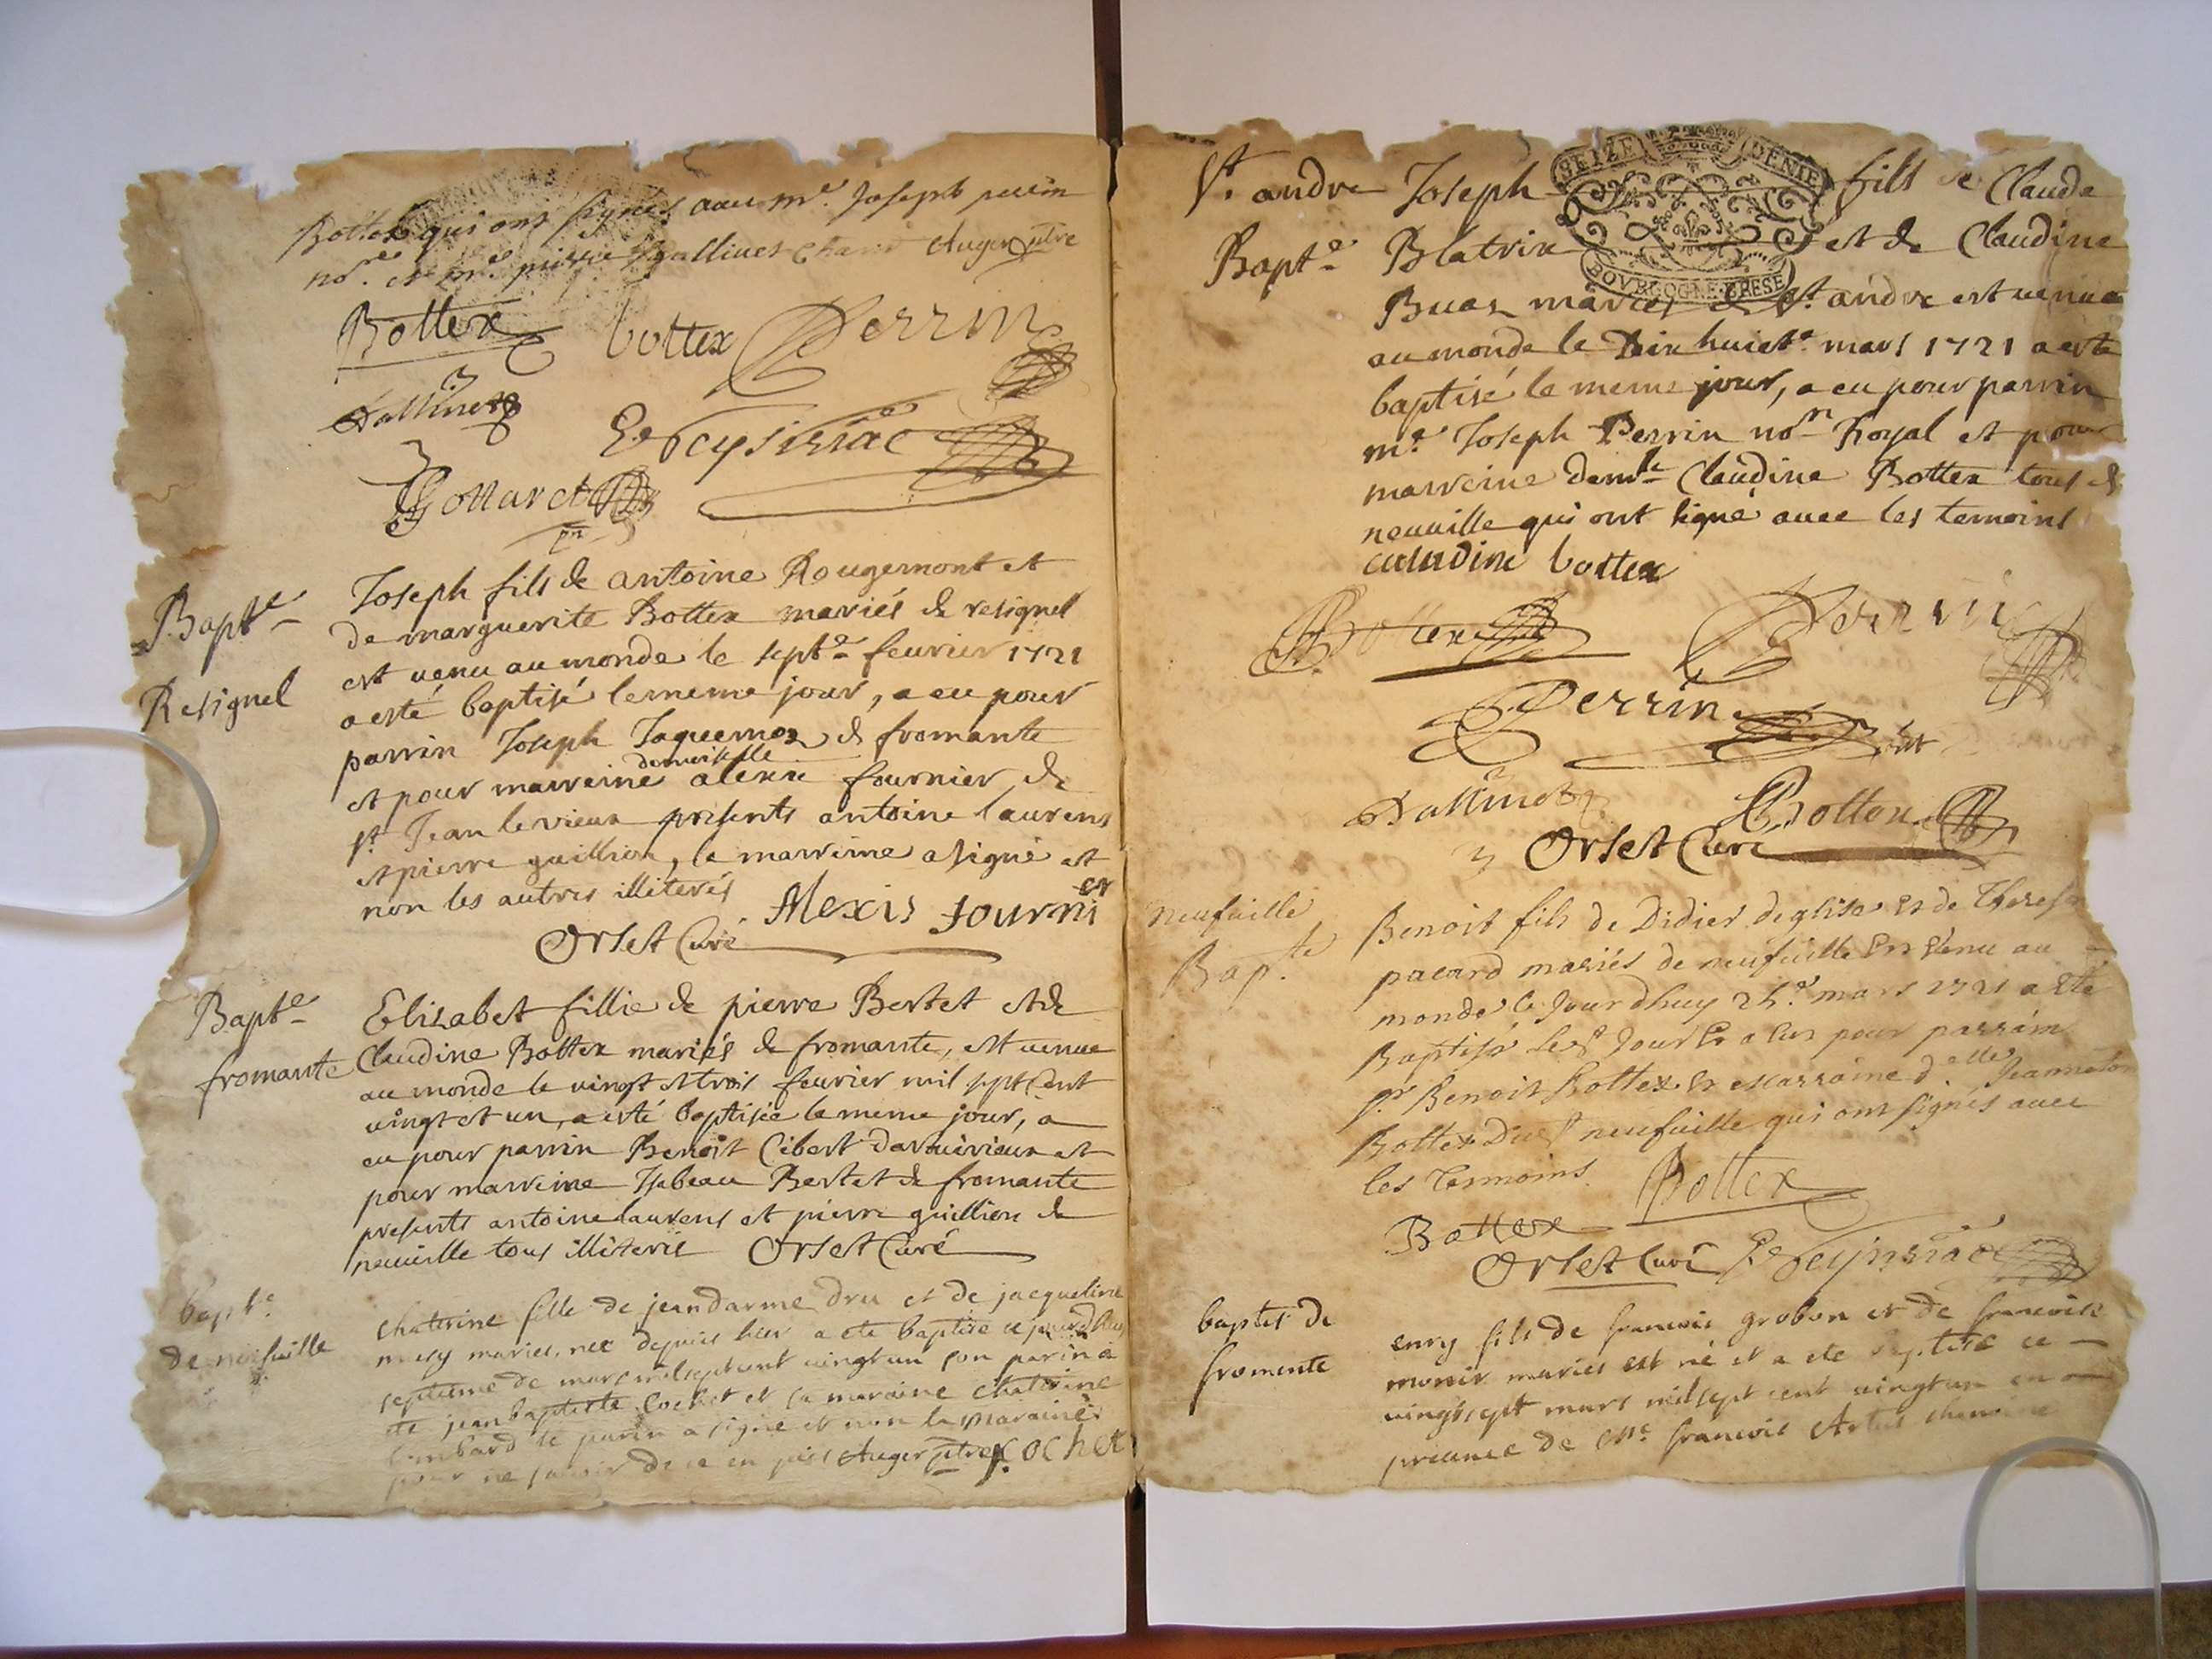 Bottex qui ont signés avec mr. Joseph perrin
nore. et mre. pierre Dalliver Auger ptre
Bottex bottex Perrin
Dallines
Gonard
Bapte
Resignel
Joseph fils de antoine Rougemont et
de marguerite Bottex mariés de resignel
est venu au monde le septe. feurier 1721
a esté baptisé le meme jour, a eu pour
parrin Joseph Jaquemoz de fromante
demoiselle
et pour marreine alexie fournier de
st. Jean le vieux presents antoine laurens
et pierre guillion, la marreine a signé et
non les autres illiterés Alexis fournier
Orset Curé
Bapte
fromante
Elisabet fillie de pierre Bertet et de
Claudine Bottex mariés de fromante, est venue
au monde le vingt et trois feurier mil sept cent
vingt et un, a esté baptisée le meme jour, a
eu pour parrin Benoit Cibert et
pour marreine Isabeau Bertet de fromante
presents antoine laurens et pierre guillion de
neuville tous illiterés Orset Curé
bapte.
de neufuille
chaterine fille de jeandarme dru et de jacqueline
mariés, nee depuis hier a ete baptise ce jourdhuy
septieme de mars milseptcent vingtun son parin a
ete jean baptiste cochet et sa maraine chaterine
lombard le parin a signé et non la maraine
pour ne savoir de ce en Auger ptre Cochet
St. andre
Bapte
SEIZE DENIE
BOVRGOGNE BRESE
Joseph fils de Claude
Blatrix et de Claudine
Buaz mariés de st. andre est venue
au monde le Dix huicte. mars 1721 a esté
baptisé le meme jour, a eu pour parrin
me. Joseph Perrin nore Royal et pour
marreine demlle Claudine Bottex tous de
neuuille qui ont signé avec les temoins
claudine bottex
Bottex Perrin
Perrin
Dallinet Bottex
Orset Curé
neufuille
Bapte.
Benoit fils de Didier deglise et de Therese
pacard mariés de neufuille est Venu au
monde le Jourdhuy mars 1721 a este
Baptisé le st Jour et a eu pour parrain
sr Benoit Bottex et Marraine delle Jeanneton
Bottex Dud neufuille qui ont signés avec
les temoins. Bottex
Bottex
Orset Curé
baptes de
fromente
enry fils de francois grobon et de francoise
monir mariés est né et a ete baptise ce
vingtsept mars milsept cent vingtun en
presence de Me. francois Artus